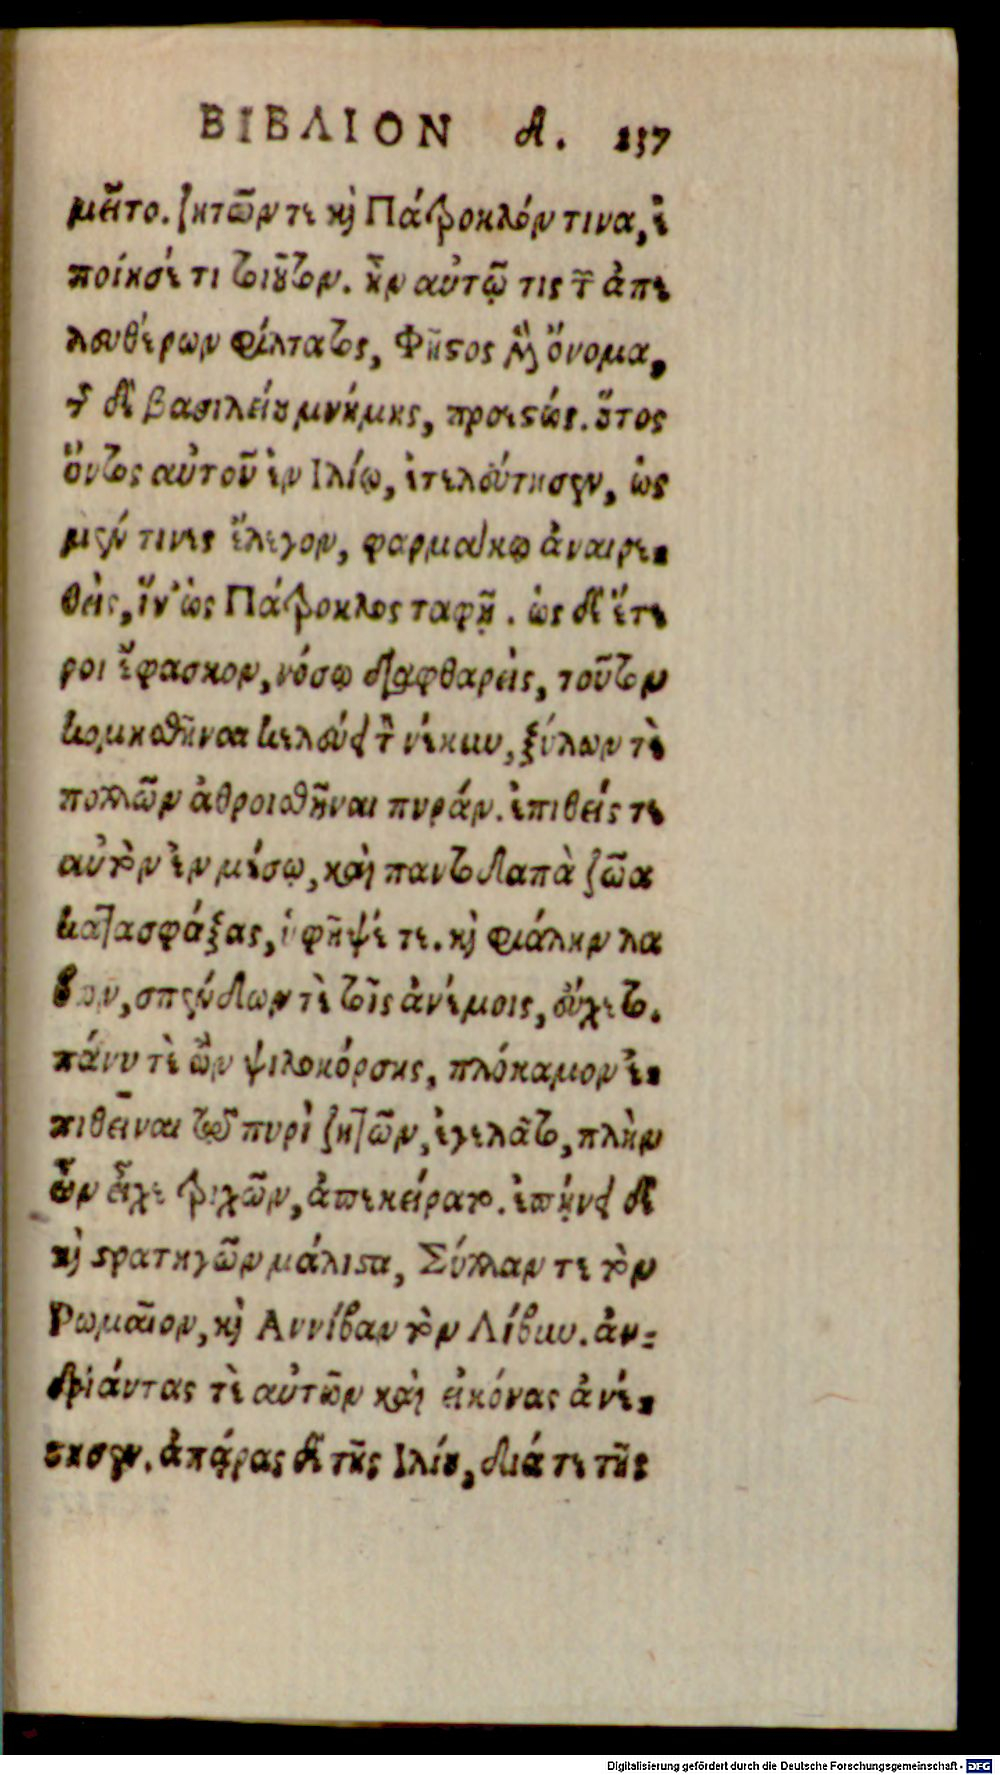 ΒΙΒΛΙΟΝ Δ. 137
μεῖτο. ζητῶν τε καὶ Πάτροκλόν τινα, ἐ
ποίησέ τι τοιοῦτον. ἦν αὐτῷ τις τῶν ἀπε
λευθέρων φίλτατος, Φῆστος μὲν ὄνομα,
τῆς δὲ βασιλείου μνήμης, προεστώς. οὗτος
ὄντος αὐτοῦ ἐν Ιλίῳ, ἐτελεύτησεν, ὡς
μέν τινες ἔλεγον, φαρμάκῳ ἀναιρε-
θεὶς, ἵν' ὡς Πάτροκλος ταφῇ. ὡς δὲ ἕτε
ροι ἔφασκον, νόσῳ διαφθαρεὶς, τοῦτον
κομισθῆναι κελεύει τὸν νέκυν, ξύλων τὲ
πολλῶν ἀθροισθῆναι πυράν. ἐπιθείς τε
αὐτὸν ἐν μέσῳ, καὶ παντοδαπὰ ζῶα
κατασφάξας, ὑφῆψέ τε. καὶ φιάλην λα
βὼν, σπένδων τὲ τοῖς ἀνέμοις, εὔχετο.
πάνυ τὲ ὢν ψιλοκόρσης, πλόκαμον ἐ-
πιθεῖναι τῷ πυρὶ ζητῶν, ἐγελᾶτο, πλὴν
ὧν εἶχε τριχῶν, ἀπεκείρατο. ἐπῄνει δὲ
καὶ στρατηγῶν μάλιστα, Σύλλαν τε τὸν
Ρωμαῖον, καὶ Αννίβαν τὸν Λίβυν. ἀν-
δριάντας τὲ αὐτῶν καὶ εἰκόνας ἀνέ-
στησεν. ἀπάρας δὲ τῆς Ιλίου, διά τε τῆς
Digitalisierung gefördert durch die Deutsche Forschungsgemeinschaft - DFG